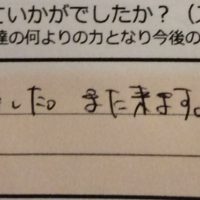 ていかがでしたか？（
達の何よりの力となり今後の
した。また来ます。